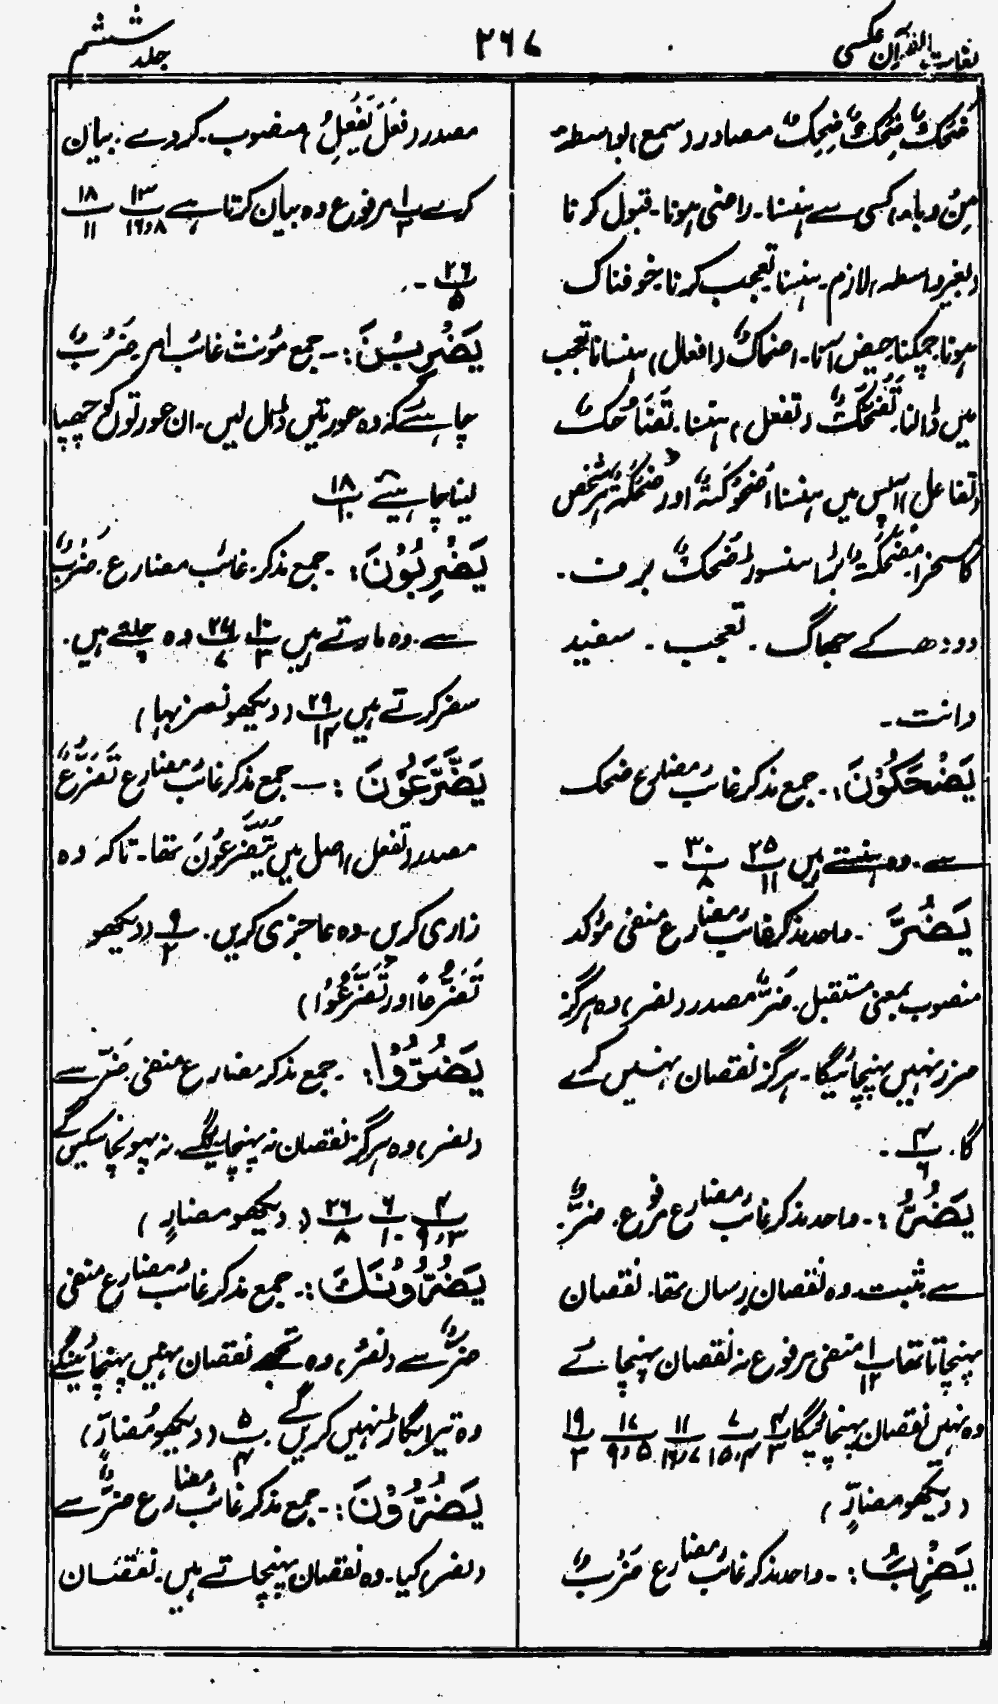 لغات القرآن عکسی
۲۶۷
جلد ششم
ضَحْکٌ ضِحْکٌ ضِحِکٌ مصادر (سمع) بواسطہ
مِنْ وباء، کسی سے ہنسنا۔ راضی ہونا۔ قبول کرنا
(بغیر واسطہ) لازم۔ ہنسنا تعجب کرنا۔ خوفناک
ہونا چمکنا حیض آنا۔ اضحاکٌ (افعال) ہنسانا تعجب
میں ڈالنا۔ تَضَحُّکٌ (تفعل) ہنسنا۔ تَضَاحُکٌ
(تفاعل) آپس میں ہنسنا اُضْحُوْکَۃٌ اور ضُحْکَۃٌ ہر شخص
کا مسخرا۔ مُضْحِکَۃٌ بڑا ہنسوڑ ضَحْکٌ برف۔
دودھ کے جھاگ۔ تعجب۔ سفید
دانت۔
یَضْحَکُوْنَ:۔ جمع مذکر غائب مضارع ضحک
سے۔ وہ ہنستے ہیں ۲۵/۱۱ ۳۰/۸ ۔
یَضُرَّ ۔ واحد مذکر غائب مضارع منفی مؤکد
منصوب بمعنی مستقبل۔ ضَرٌّ مصدر (نصر) وہ ہرگز
ضرر نہیں پہنچائیگا۔ ہرگز نقصان نہیں کرے
گا۔ ۴/۶ ۔
یَضُرُّ:۔ واحد مذکر غائب مضارع مرفوع۔ ضرٌّ
سے مثبت۔ وہ نقصان رساں تھا۔ نقصان
پہنچاتا تھا پ ۱/۱۲ منفی مرفوع نہ نقصان پہنچائے
وہ نہیں نقصان پہنچائیگا ۴/۳ ۷/۱۵،۴ ۱۱/۱۶،۷ ۱۷/۹،۵ ۱۹/۳
(دیکھو مضارٍّ)
یَضْرِبُ:۔ واحد مذکر غائب مضارع ضَرْبٌ
مصدر (فَعَلَ یَفْعِلُ) منصوب۔ کر دے۔ بیان
کرے پ ۱/۳ مرفوع وہ بیان کرتا ہے ۱۳/۱۶،۸ ۱۸/۱۱
۲۶/۵ ۔
یَضْرِبْنَ:۔ جمع مؤنث غائب امر۔ ضَرْبٌ
چاہئے کہ وہ عورتیں ڈال لیں۔ ان عورتوں کو چھپا
لینا چاہیئے ۱۸/۱۰
یَضْرِبُوْنَ:۔ جمع مذکر غائب مضارع۔ ضَرْبٌ
سے۔ وہ مارتے ہیں ۱۰/۳ ۲۶/۷ وہ چلتے ہیں۔
سفر کرتے ہیں ۲۹/۱۴ (دیکھو نصر بہا)
یَضَّرَّعُوْنَ:۔ جمع مذکر غائب مضارع تَضَرُّعٌ
مصدر (تفعل) اصل میں یَتَضَرَّعُوْنَ تھا۔ تاکہ وہ
زاری کریں۔ وہ عاجزی کریں۔ ۹/۲ (دیکھو
تَضَرُّعًا اور تَضَرَّعُوْا)
یَضُرُّوْا:۔ جمع مذکر مضارع منفی۔ ضَرٌّ سے
(نصر) وہ ہرگز نقصان نہ پہنچا سکیں گے۔ نہ پہونچا سکیں گے
۴/۹،۳ ۶/۱۰ ۲۶/۸ (دیکھو مضارٍّ)
یَضُرُّوْنَکَ:۔ جمع مذکر غائب مضارع منفی
ضرٌّ سے (نصر) وہ تجھے نقصان نہیں پہنچائینگے
وہ تیرا بگاڑ نہیں کریں گے ۵/۴ (دیکھو مضارٍّ)
یَضُرُّوْنَ:۔ جمع مذکر غائب مضارع ضرٌّ سے
(نصر) کیا۔ وہ نقصان پہنچاتے ہیں۔ نقصان